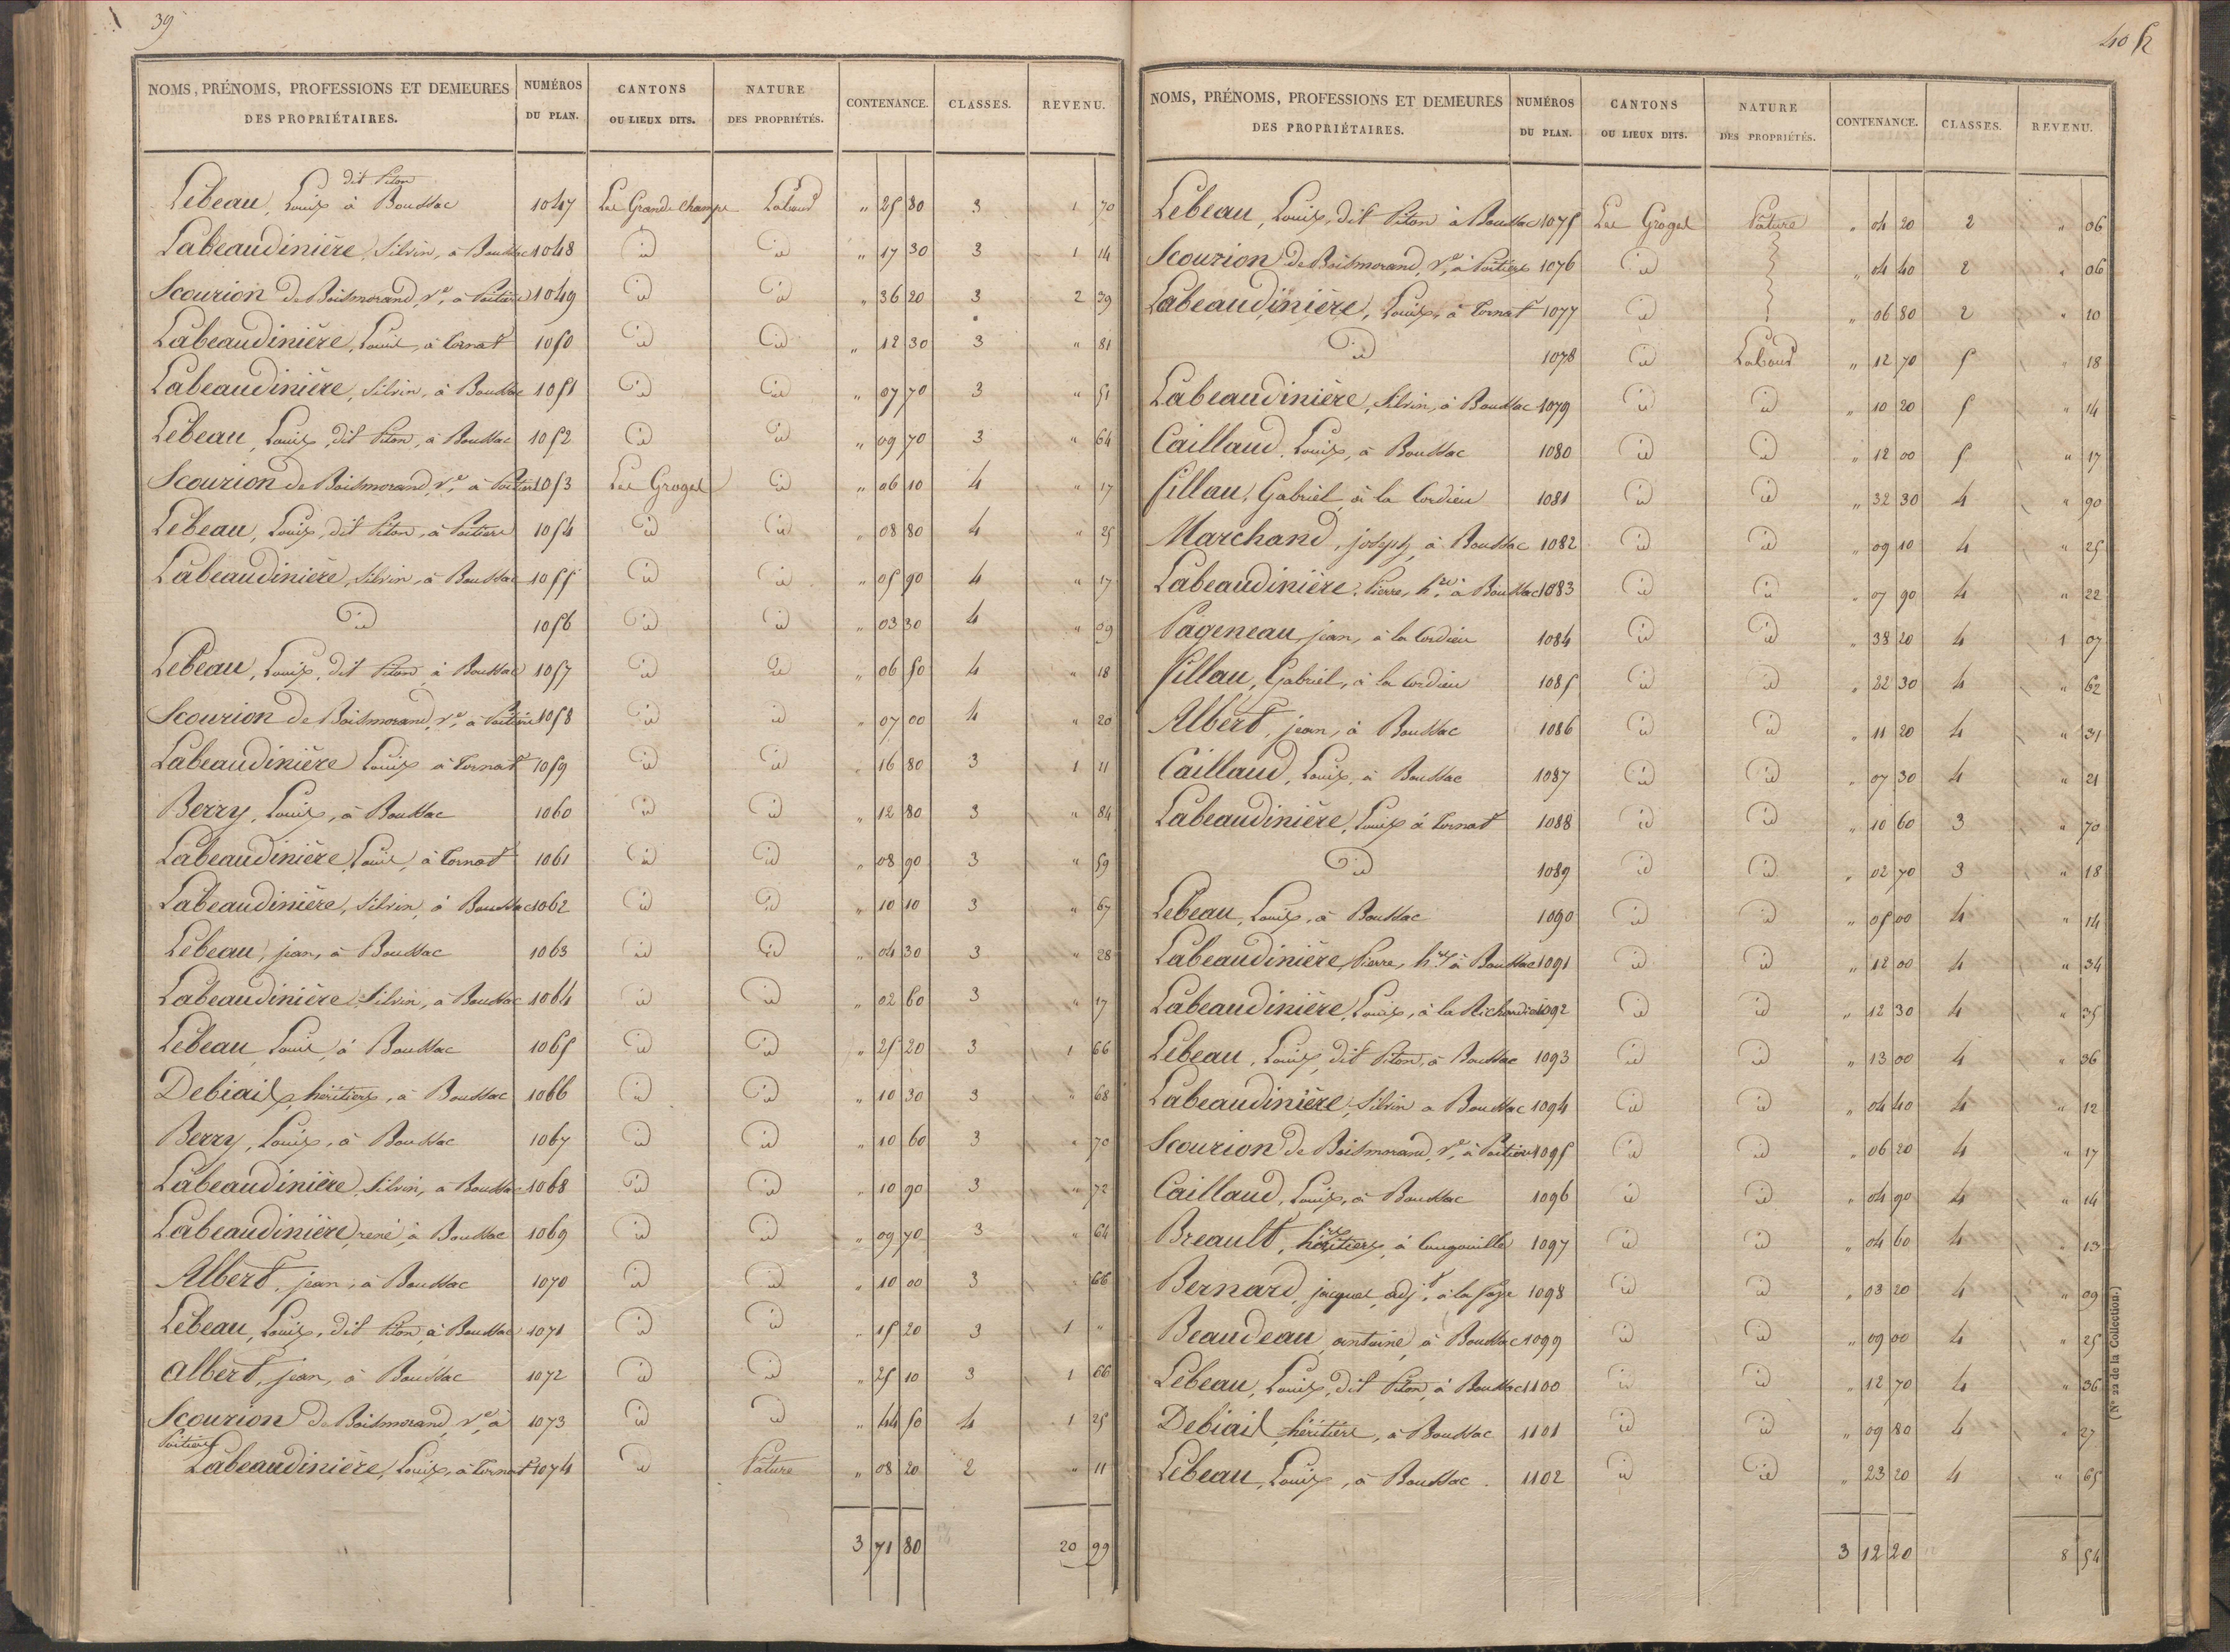 39
NOMS, PRÉNOMS, PROFESSIONS ET DEMEURES DES PROPRIÉTAIRES. | NUMÉROS DU PLAN. | CANTONS OU LIEUX DITS. | NATURE DES PROPRIÉTÉS. | CONTENANCE. | CLASSES. | REVENU.
dit Piton
Lebeau, Louis à Boussac 1047 Les Grands champs Labour " 25 80 3 1 70
Labeaudinière, Silvin, à Boussac 1048 id id " 17 30 3 1 14
Scourion de Boismorand, Ve, à Poitiers 1049 id id " 36 20 3 2 39
Labeaudinière, Louis, à Tornat 1050 id id " 12 30 3 " 81
Labeaudinière, Silvin, à Boussac 1051 id id " 07 70 3 " 51
Lebeau, Louis, dit Piton, à Boussac 1052 id id " 09 70 3 " 64
Scourion de Boismorand, Ve, à Poitiers 1053 Les Groges id " 06 10 4 " 17
Lebeau, Louis, dit Piton, à Poitiers 1054 id id " 08 80 4 " 25
Labeaudinière, Silvin, à Boussac 1055 id id " 05 90 4 " 17
id 1056 id id " 03 30 4 " 09
Lebeau, Louis, dit Piton à Boussac 1057 id id " 06 50 4 " 18
Scourion de Boismorand, Ve, à Poitiers 1058 id id " 07 00 4 " 20
Labeaudinière Louis à Tornat 1059 id id " 16 80 3 1 11
Berry, Louis, à Boussac 1060 id id " 12 80 3 " 84
Labeaudinière, Louis, à Tornat 1061 id id " 08 90 3 " 59
Labeaudinière, Silvin, à Boussac 1062 id id " 10 10 3 " 67
Lebeau, jean, à Boussac 1063 id id " 04 30 3 " 28
Labeaudinière, Silvin, à Boussac 1064 id id " 02 60 3 " 17
Lebeau, Louis, à Boussac 1065 id id " 25 20 3 1 66
Debiais, héritiers, à Boussac 1066 id id " 10 30 3 " 68
Berry, Louis, à Boussac 1067 id id " 10 60 3 " 70
Labeaudinière, Silvin, à Boussac 1068 id id " 10 90 3 " 72
Labeaudinière, réné, à Boussac 1069 id id " 09 70 3 " 64
Albert, jean, à Boussac 1070 id id " 10 00 3 " 66
Lebeau, Louis, dit Piton, à Boussac 1071 id id " 15 20 3 1 "
albert, jean, à Boussac 1072 id id " 25 10 3 1 66
Scourion de Boismorand, Ve, à 1073 id id " 44 50 4 1 25
Poitiers
Labeaudinière, Louis, à Tornat 1074 id Pature " 08 20 2 " 11
3 71 80 20 99
40
NOMS, PRÉNOMS, PROFESSIONS ET DEMEURES DES PROPRIÉTAIRES. | NUMÉROS DU PLAN. | CANTONS OU LIEUX DITS. | NATURE DES PROPRIÉTÉS. | CONTENANCE. | CLASSES. | REVENU.
Lebeau, Louis, dit Piton à Boussac 1075 Les Groges Pature " 04 20 2 " 06
Scourion de Boismorand, Ve, à Poitiers 1076 id " 04 40 2 " 06
Labeaudinière, Louis, à Tornat 1077 id " 06 80 2 " 10
id 1078 id Labour " 12 70 5 " 18
Labeaudinière, Silvin, à Boussac 1079 id id " 10 20 5 " 14
Caillaud, Louis, à Boussac 1080 id id " 12 00 5 " 17
fillau, Gabriel, à la Cordieu 1081 id id " 32 30 4 " 90
Marchand, joseph, à Boussac 1082 id id " 09 10 4 " 25
Labeaudinière, Pierre, hers à Boussac 1083 id id " 07 90 4 " 22
Pageneau, jean, à la Cordieu 1084 id id " 38 20 4 1 07
fillau, Gabriel, à la Cordieu 1085 id id " 22 30 4 " 62
Albert, jean, à Boussac 1086 id id " 11 20 4 " 31
Caillaud, Louis, à Boussac 1087 id id " 07 30 4 " 21
Labeaudinière, Louis à Tornat 1088 id id " 10 60 3 " 70
id 1089 id id " 02 70 3 " 18
Lebeau, Louis, à Boussac 1090 id id " 05 00 4 " 14
Labeaudinière, Pierre, hers à Boussac 1091 id id " 12 00 4 " 34
Labeaudinière, Louis, à la 1092 id id " 12 30 4 " 35
Lebeau, Louis, dit Piton, à Boussac 1093 id id " 13 00 4 " 36
Labeaudinière, Silvin à Boussac 1094 id id " 04 40 4 " 12
Scourion de Boismorand, Ve, à Poitiers 1095 id id " 06 20 4 " 17
Caillaud, Louis, à Boussac 1096 id id " 04 90 4 " 14
Breault, héritiers, à 1097 id id " 04 60 4 " 13
Bernard, jacques, adjt, à la 1098 id id " 03 20 4 " 09
Beaudeau, antoine, à Boussac 1099 id id " 09 00 4 " 25
Lebeau, Louis, dit Piton, à Boussac 1100 id id " 12 70 4 " 36
Debiais, héritiers, à Boussac 1101 id id " 09 80 4 " 27
Lebeau, Louis, à Boussac. 1102 id id " 23 20 4 " 65
3 12 20 8 54
(N° 22 de la Collection.)